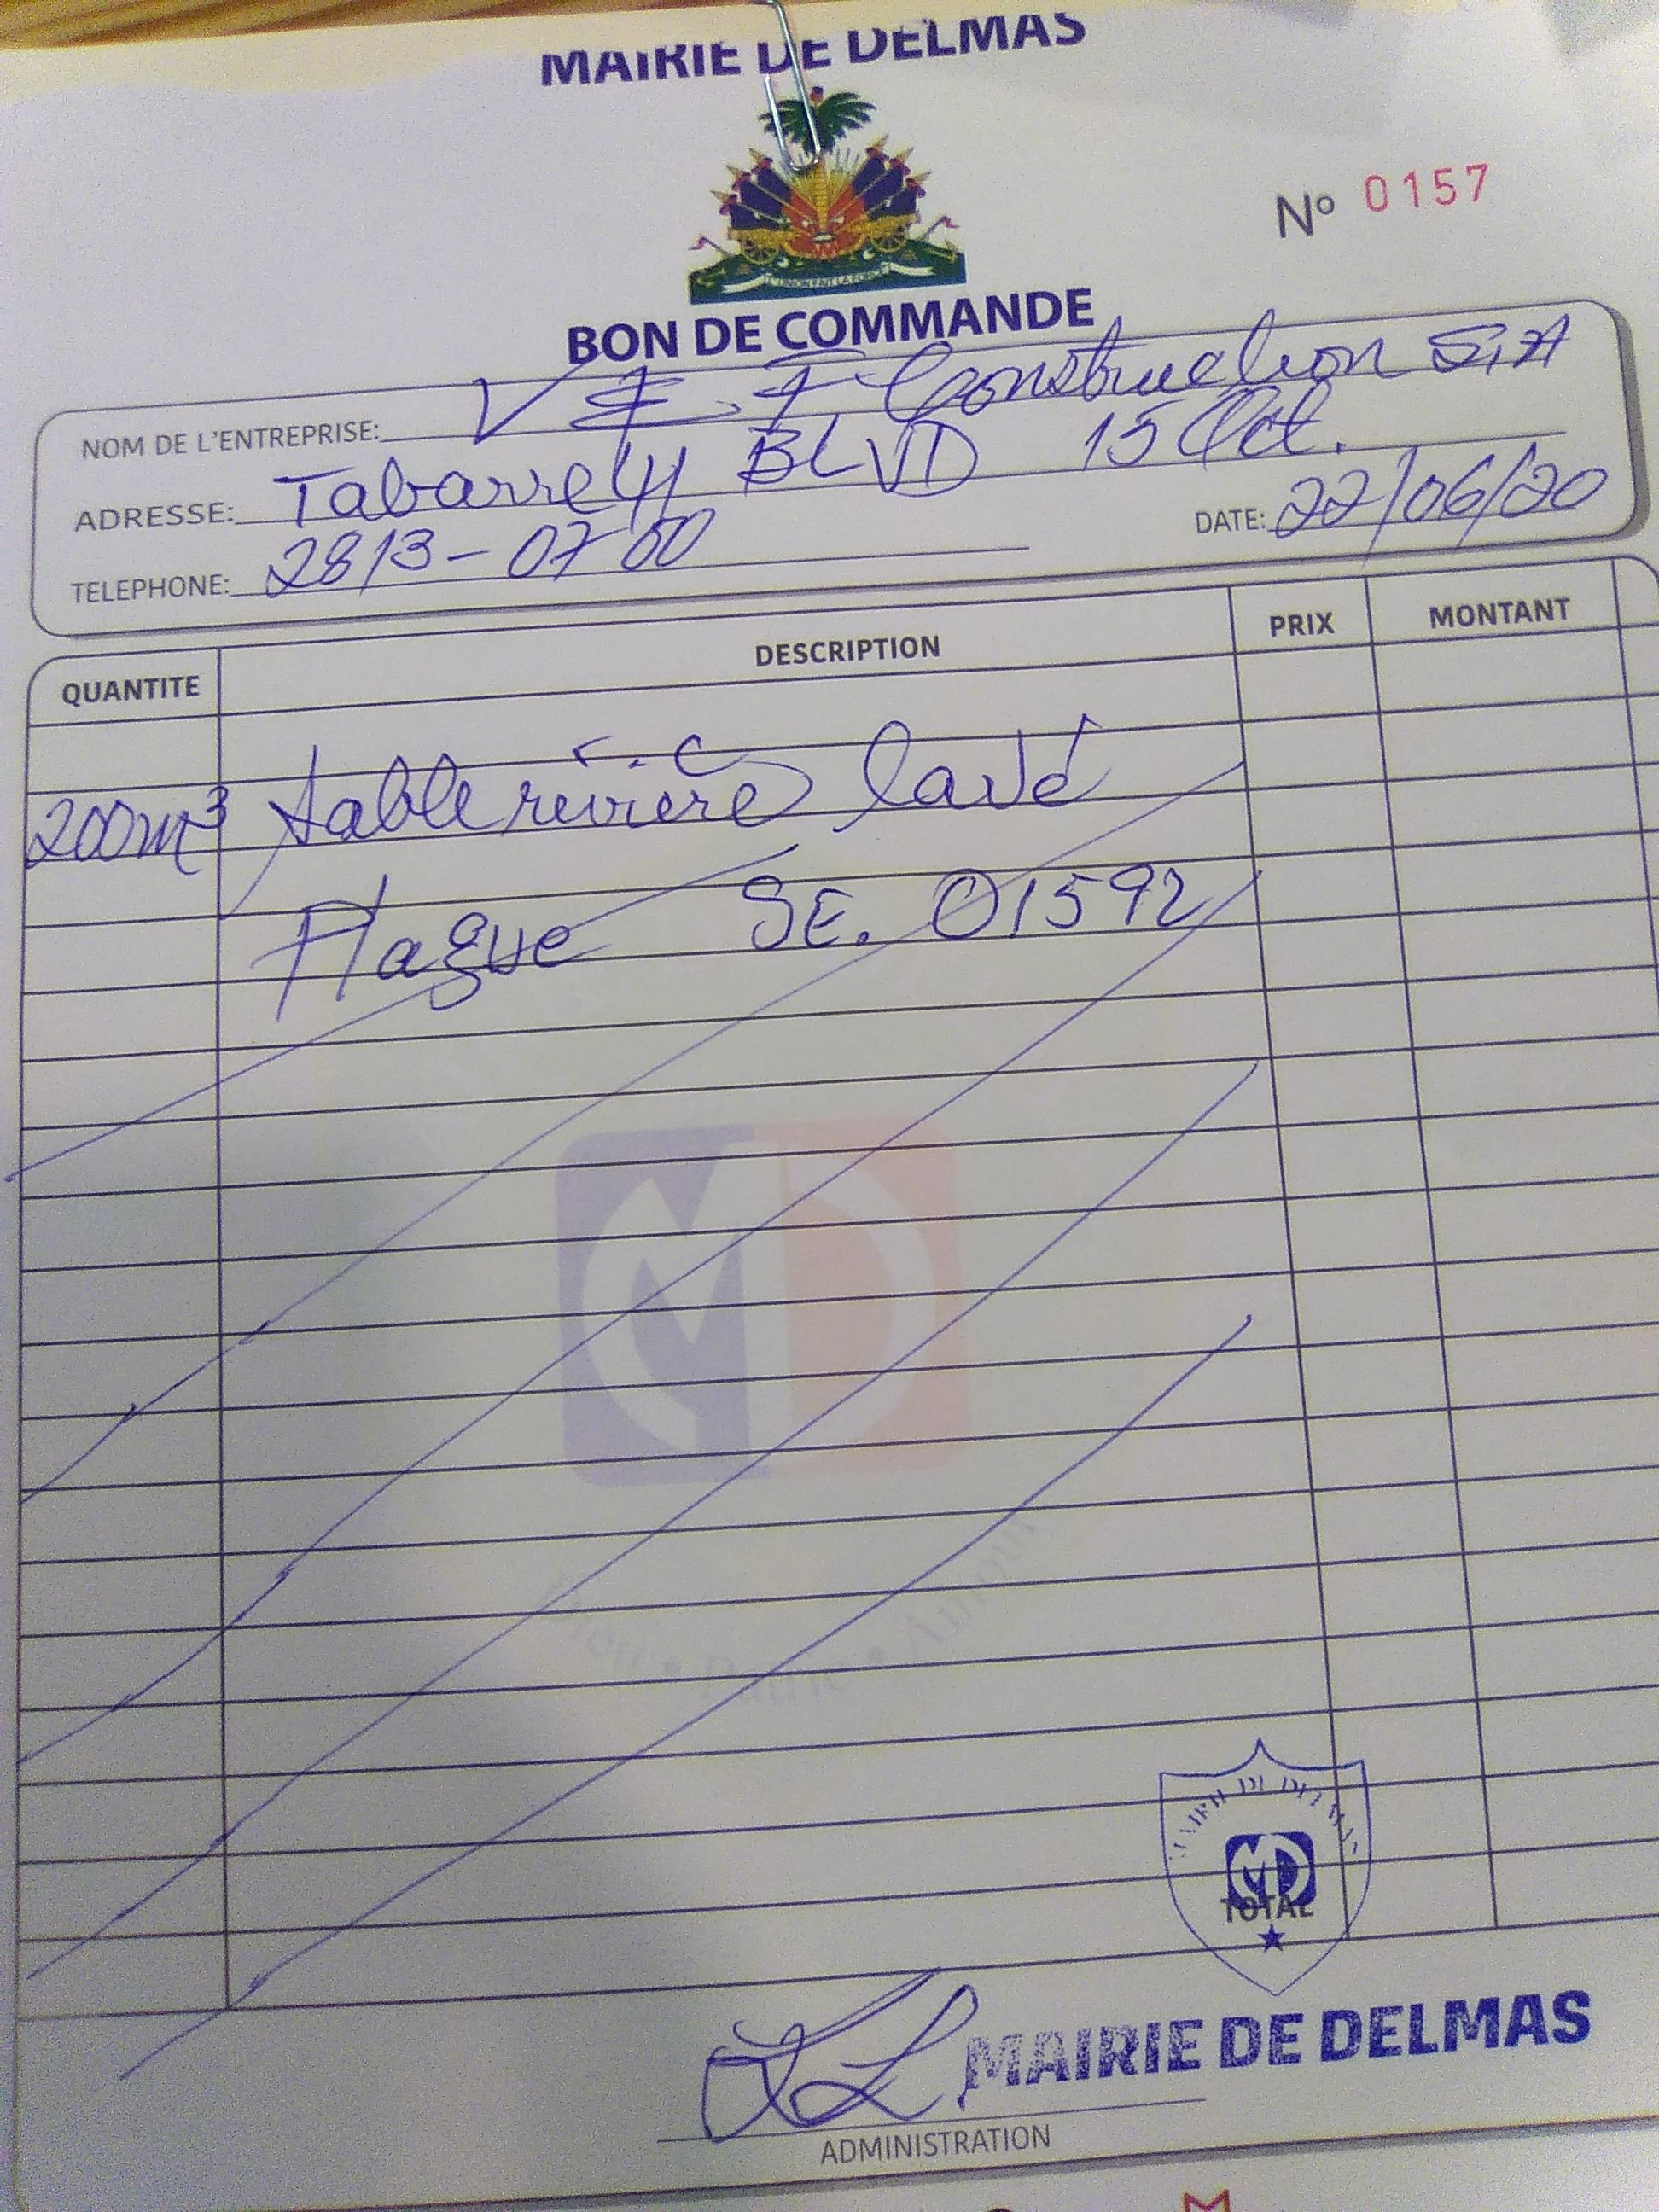 MAIRIE DE DELMAS
L'UNION FAIT LA FORCE
Nº 0157
BON DE COMMANDE
NOM DE L'ENTREPRISE: V E. F Construction S.A
ADRESSE: Tabarre 41 BLVD 15 Oct.
TELEPHONE: 2813-0700
DATE: 22/06/20
QUANTITE DESCRIPTION PRIX MONTANT
200m³ sable rivière lavé
Plaque SE. 01592
MD
Patrie
MAIRIE DE DELMAS
MD
TOTAL
MAIRIE DE DELMAS
ADMINISTRATION